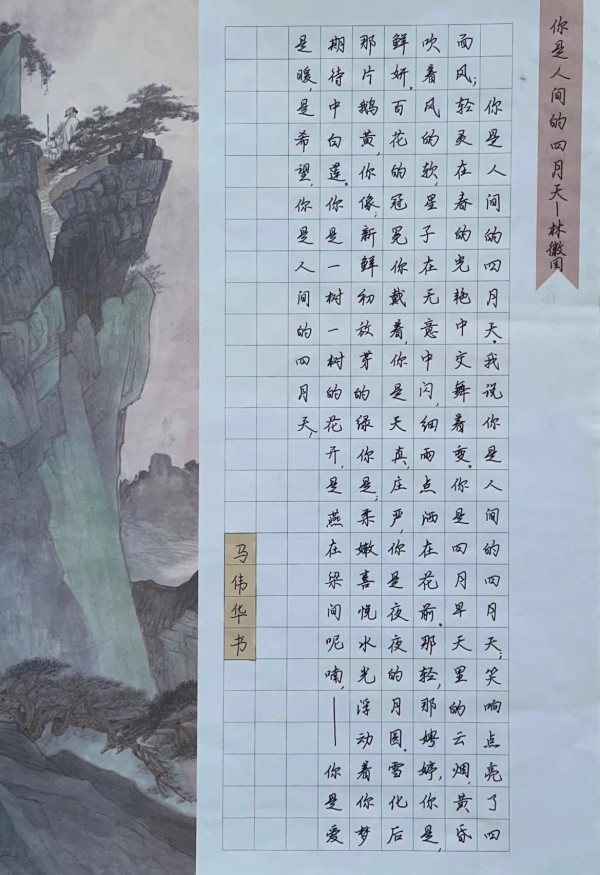 你是人间的四月天—林徽因
你是人间的四月天。我说你是人间的四月天;笑响点亮了四
面风;轻灵在春的光艳中交舞着变。你是四月早天里的云烟,黄昏
吹着风的软,星子在无意中闪,细雨点洒在花前。那轻,那娉婷,你是,
鲜妍。百花的冠冕你戴着,你是天真,庄严,你是夜夜的月圆。雪化后
那片鹅黄,你像,新鲜初放芽的绿,你是,柔嫩喜悦水光浮动着你梦
期待中白莲。你是一树一树的花开,是燕在梁间呢喃,——你是爱
是暖,是希望,你是人间的四月天,
马伟华书